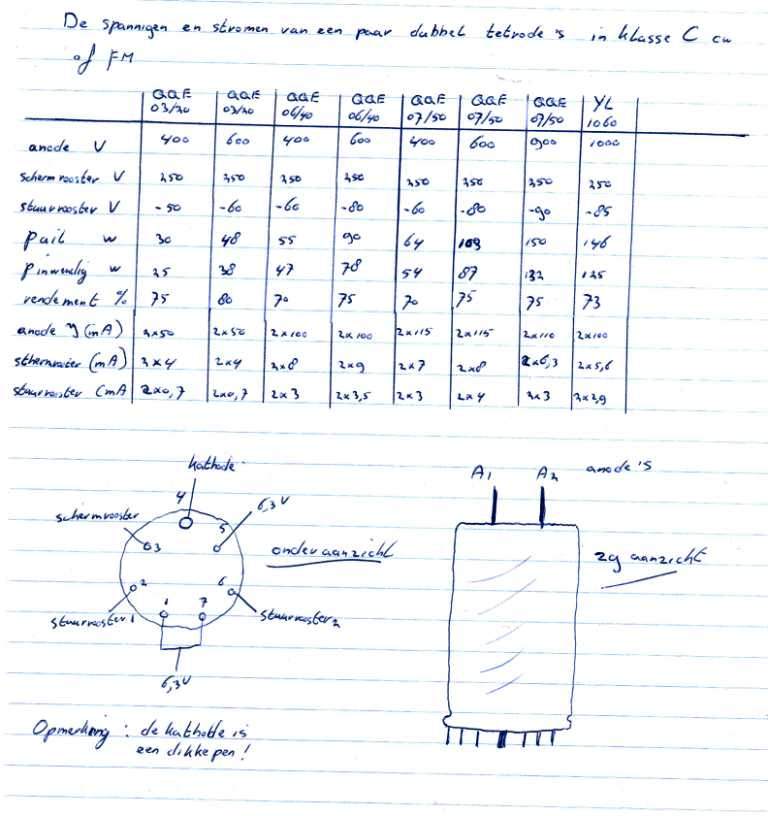 De spannigen en stromen van een paar dubbel tetrode's in klasse C cw
of FM
QQE 03/20 QQE 03/20 QQE 06/40 QQE 06/40 QQE 07/50 QQE 07/50 QQE 07/50 YL 1060
anode V 400 600 400 600 400 600 900 1000
schermrooster V 250 250 250 250 250 250 250 250
stuurrooster V -50 -60 -60 -80 -60 -80 -90 -85
P uit w 30 48 55 90 64 109 150 146
P inwendig w 25 38 47 78 54 87 132 125
rendement % 75 80 70 75 70 75 75 73
anode (mA) 2x50 2x50 2x100 2x100 2x115 2x115 2x110 2x100
schermrooster (mA) 2x4 2x4 2x8 2x9 2x7 2x8 2x6,3 2x5,6
stuurrooster (mA 2x0,7 2x0,7 2x3 2x3,5 2x3 2x4 2x3 2x2,9
kathode
4
6,3V
schermrooster
5
3
2
6
1 7
stuurrooster 1
stuurrooster 2
6,3V
onderaanzicht
A1 A2 anode's
zy aanzicht
Opmerking : de kathode is
een dikke pen !